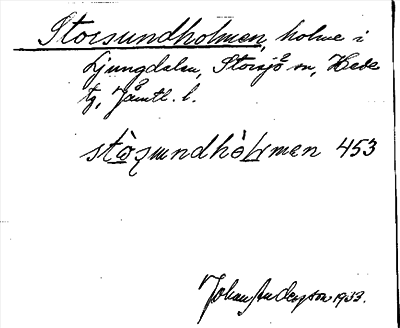 Storsundholmen, holme i
Ljungdalen, Storsjö sn, Hede
tg, Jämtl. l.
453
Johan Anderson 1933.